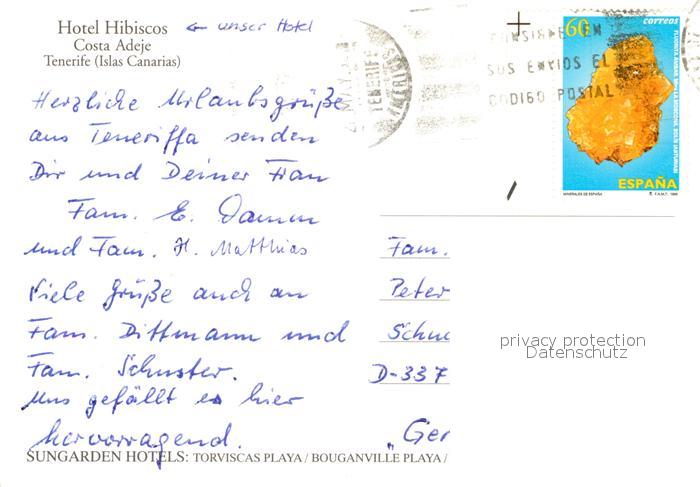 Hotel Hibiscos ← unser Hotel
Costa Adeje
Tenerife (Islas Canarias)
Herzliche Urlaubsgrüße
aus Teneriffa senden
Dir und Deiner Frau
Fam. E. Damm
und Fam. H. Matthias
Viele Grüße auch an
Fam. Dittmann und
Fam. Schuster.
Uns gefällt es hier
hervorragend.
SUNGARDEN HOTELS: TORVISCAS PLAYA / BOUGANVILLE PLAYA /
TENERIFE
CONSIGNE EN
SUS ENVIOS EL
CODIGO POSTAL
60 correos
ESPAÑA
MINERALES DE ESPAÑA
Fam.
Peter
Schu
D-337
„Ger
privacy protection
Datenschutz